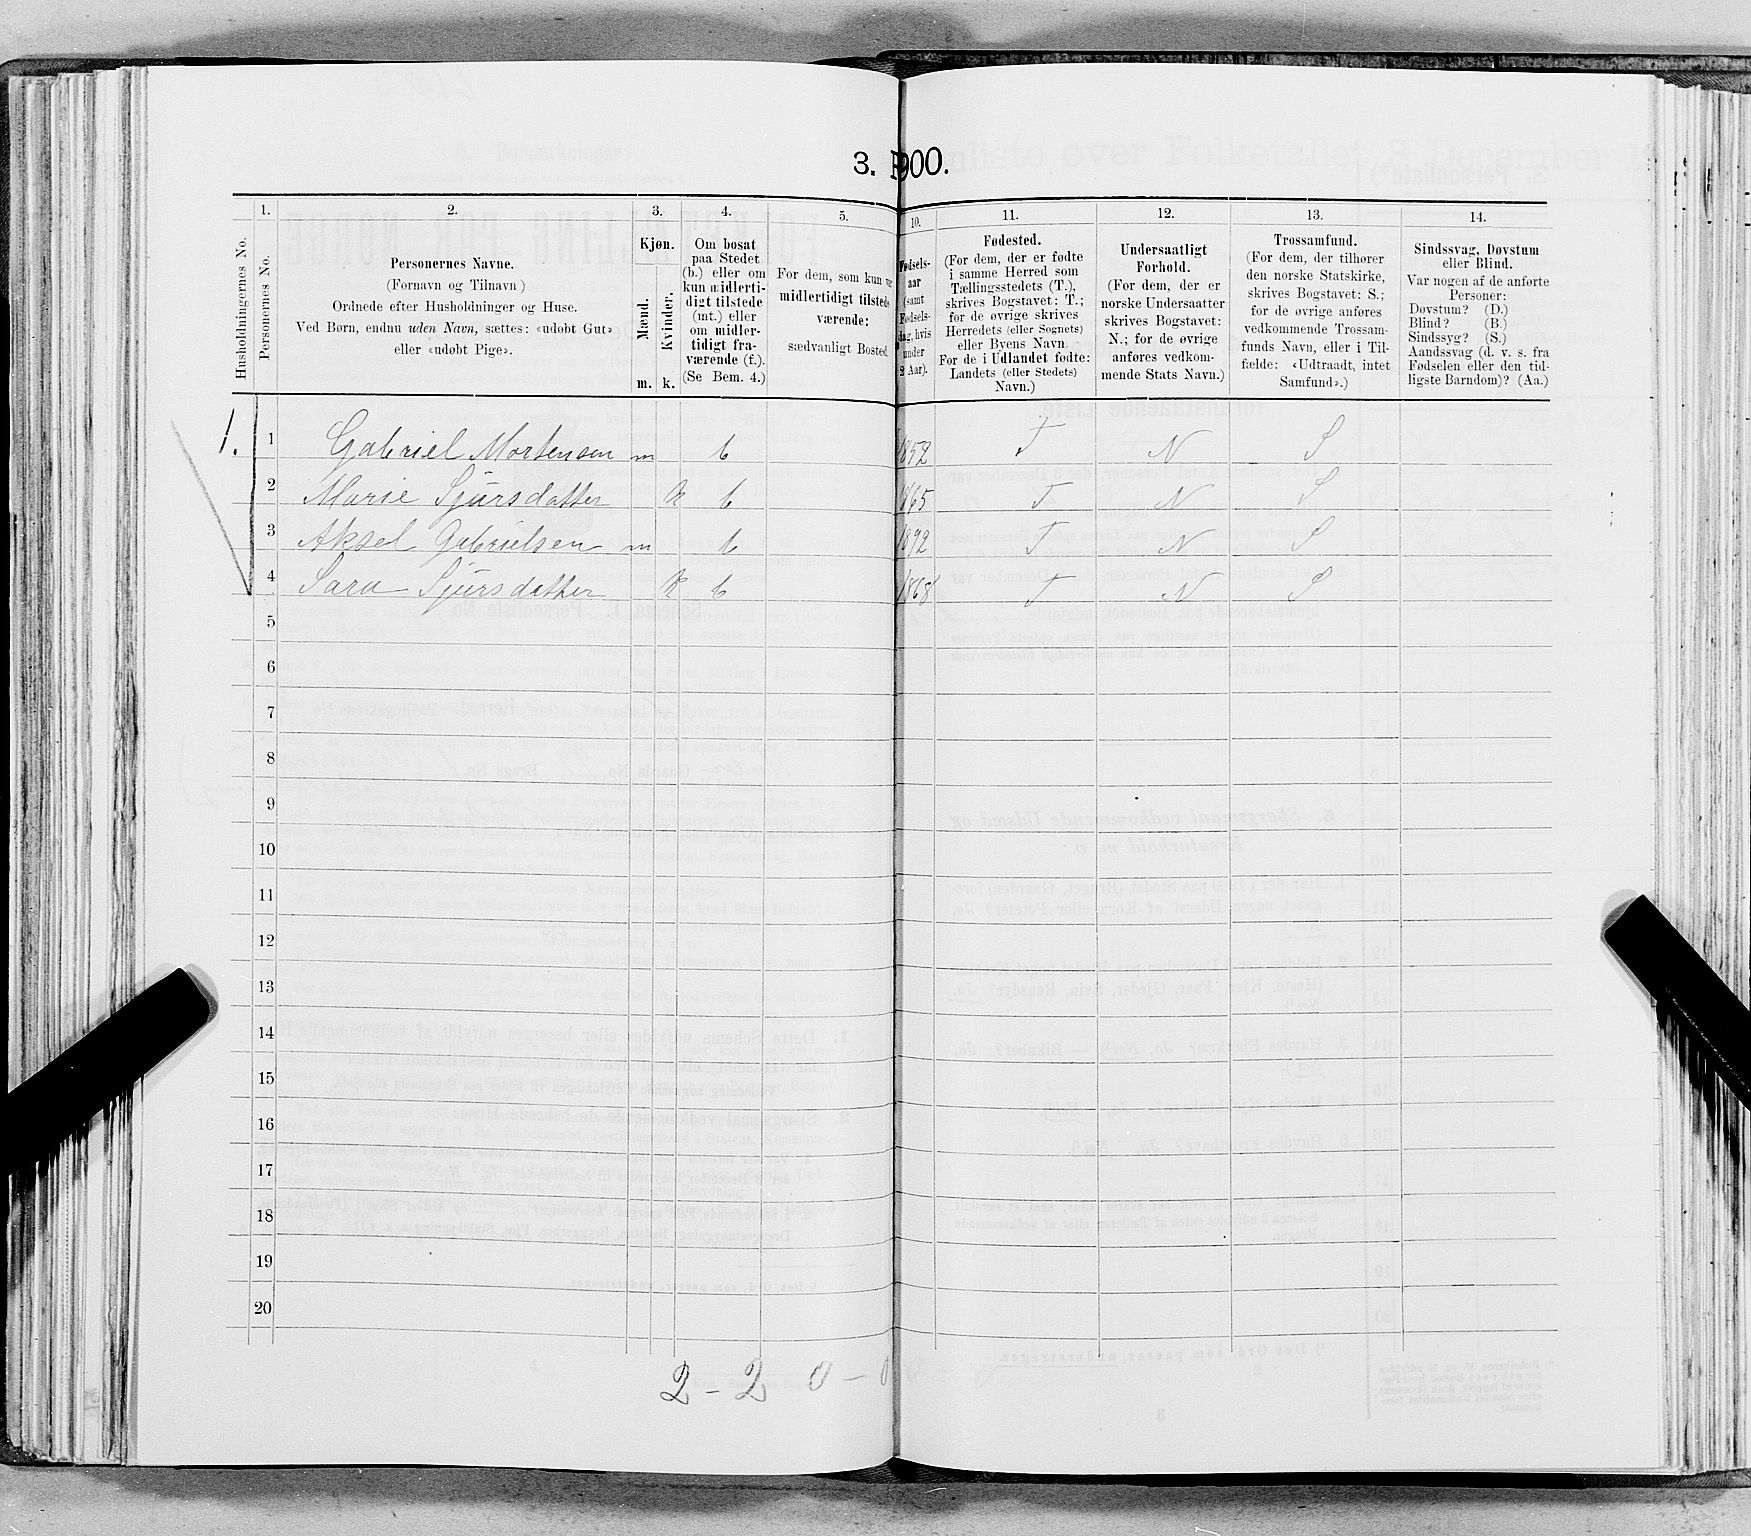 3. P900.
1.
2.
3.
4.
5.
10.
11.
12.
13.
14.
Husholdningernes No.
Personernes No.
Personernes Navne.
(Fornavn og Tilnavn)
Ordnede efter Husholdninger og Huse.
Ved Børn, endnu uden Navn, sættes: «udøbt Gut»
eller «udøbt Pige».
Kjøn.
Mænd.
Kvinder.
m. k.
Om bosat
paa Stedet
(b.) eller om
kun midlerti-
digt tilstede
(mt.) eller
om midler-
tidigt fra-
værende (f.).
(Se Bem. 4.)
For dem, som kun var
midlertidigt tilstede-
værende:
sædvanligt Bosted.
Fødsels-
aar
(samt
Fødsels-
dag, hvis
under
2 Aar).
Fødested.
(For dem, der er fødte
i samme Herred som
Tællingsstedets (T.),
skrives Bogstavet: T.;
for de øvrige skrives
Herredets (eller Sognets)
eller Byens Navn.
For de i Udlandet fødte:
Landets (eller Stedets)
Navn.)
Undersaatligt
Forhold.
(For dem, der er
norske Undersaatter
skrives Bogstavet:
N.; for de øvrige
anføres vedkom-
mende Stats Navn.)
Trossamfund.
(For dem, der tilhører
den norske Statskirke,
skrives Bogstavet: S.;
for de øvrige anføres
vedkommende Trossam-
funds Navn, eller i Til-
fælde: «Udtraadt, intet
Samfund».)
Sindssvag, Døvstum
eller Blind.
Var nogen af de anførte
Personer:
Døvstum? (D.)
Blind? (B.)
Sindssyg? (S.)
Aandssvag (d. v. s. fra
Fødselen eller den tid-
ligste Barndom)? (Aa.)
1. 1 Gabriel Mortensen m b 1852 T N S
2 Marie Sjursdatter k b 1865 T N S
3 Aksel Gabrielsen m b 1892 T N S
4 Sara Sjursdatter k b 1868 T N S
5
6
7
8
9
10
11
12
13
14
15
16
17
18
19
20
2 - 2 0 - 0